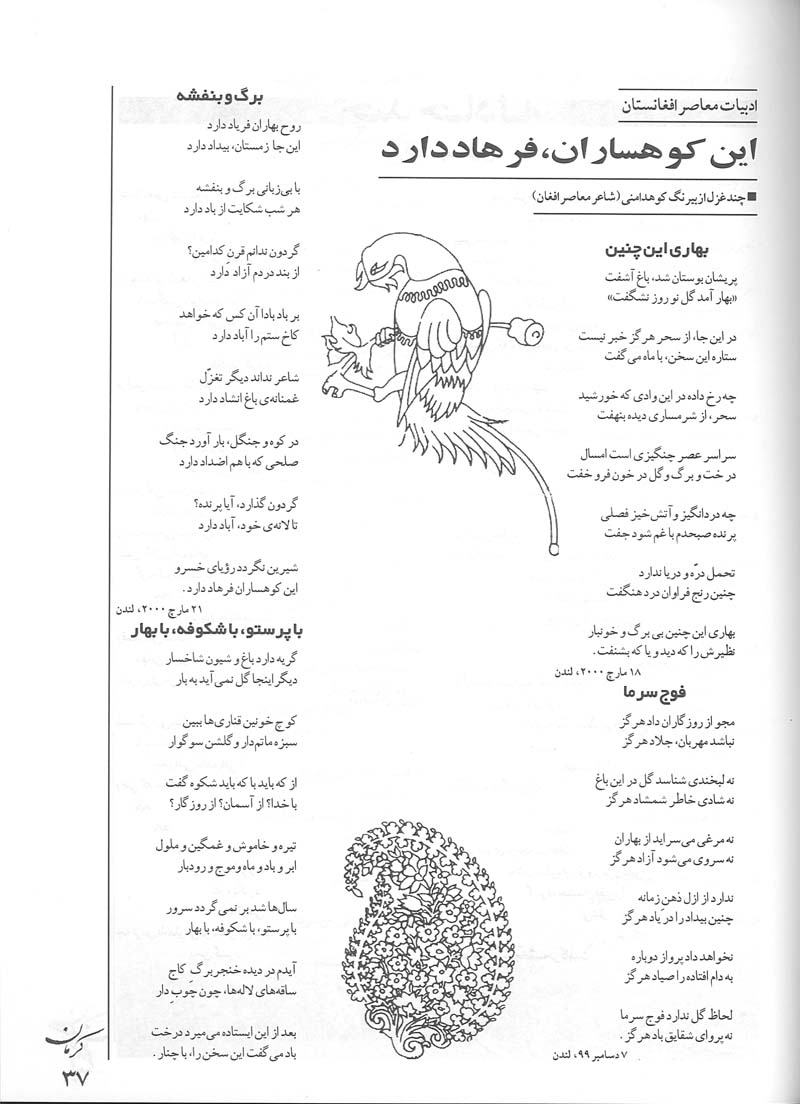 ادبیات معاصر افغانستان
این کوهساران، فرهاد دارد
■ چند غزل از بیرنگ کوهدامنی (شاعر معاصر افغان)
بهاری این چنین
پریشان بوستان شد، باغ آشفت
«بهار آمد گل نوروز نشگفت»
در این جا، از سحر هرگز خبر نیست
ستاره این سخن، با ماه می گفت
چه رخ داده در این وادی که خورشید
سحر، از شرمساری دیده بنهفت
سراسر عصر چنگیزی است امسال
درخت و برگ و گل در خون فرو خفت
چه دردانگیز و آتش خیز فصلی
پرنده صبحدم با غم شود جفت
تحمل درّه و دریا ندارد
چنین رنج فراوان درد هنگفت
بهاری این چنین بی برگ و خونبار
نظیرش را که دید و یا که بشنفت.
۱۸ مارچ ۲۰۰۰، لندن
فوج سرما
مجو از روزگاران داد هرگز
نباشد مهربان، جلاد هرگز
نه لبخندی شناسد گل در این باغ
نه شادی خاطر شمشاد هرگز
نه مرغی می سراید از بهاران
نه سروی می شود آزاد هرگز
ندارد از ازل ذهنِ زمانه
چنین بیداد را در یاد هرگز
نخواهد داد پرواز دوباره
به دام افتاده را صیاد هرگز
لحاظ گل ندارد فوج سرما
نه پروای شقایق باد هرگز.
۷ دسامبر ۹۹، لندن
برگ و بنفشه
روح بهاران فریاد دارد
این جا زمستان، بیداد دارد
با بی زبانی برگ و بنفشه
هر شب شکایت از باد دارد
گردون ندانم قرنِ کدامین؟
از بند دردم آزاد دارد
بر باد بادا آن کس که خواهد
کاخ ستم را آباد دارد
شاعر نداند دیگر تغزّل
غمنانه‌ی باغ انشاد دارد
در کوه و جنگل، بار آورد جنگ
صلحی که با هم اضداد دارد
گردون گذارد، آیا پرنده؟
تا لانه‌ی خود، آباد دارد
شیرین نگردد رؤیای خسرو
این کوهساران فرهاد دارد.
۲۱ مارچ ۲۰۰۰، لندن
با پرستو، با شکوفه، با بهار
گریه دارد باغ و شیون شاخسار
دیگر اینجا گل نمی آید به بار
کوچ خونین قناری ها ببین
سبزه ماتم دار و گلشن سوگوار
از که باید با که باید شکوه گفت
با خدا؟ از آسمان؟ از روزگار؟
تیره و خاموش و غمگین و ملول
ابر و باد و ماه و موج و رودبار
سال‌ها شد بر نمی گردد سرور
با پرستو، با شکوفه، با بهار
آیدم در دیده خنجر برگِ کاج
ساقه‌های لاله‌ها، چون چوبِ دار
بعد از این ایستاده می میرد درخت
باد می گفت این سخن را، با چنار.
کرمان
۳۷